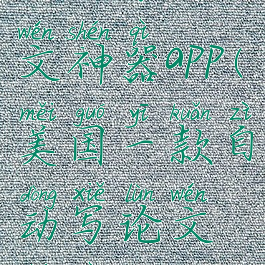 wén shén qì
文神器app(
měi guó yī kuǎn zì
美国一款自
dòng xiě lùn wén
动写论文